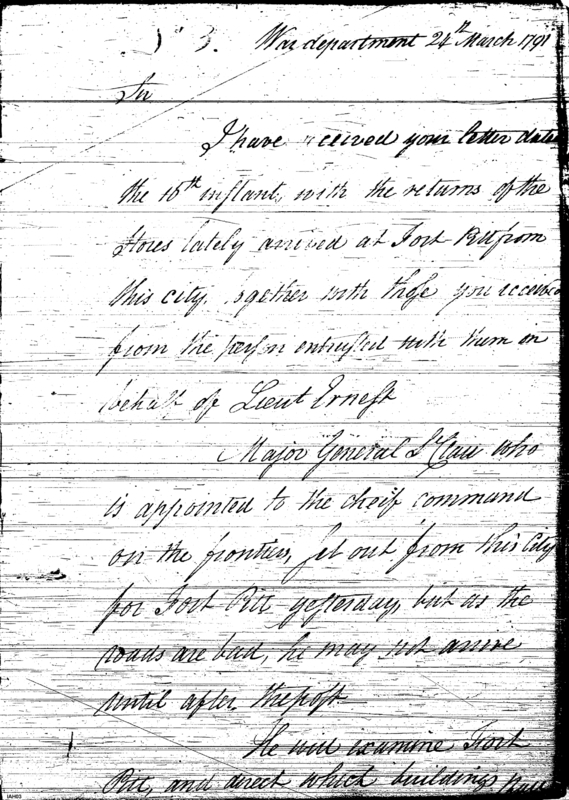 War department 24th March 1791
Sir
I have received your letter dated
the 10th instant, with the returns of the
stores lately arrived at Fort Pitt from
this city, together with those you received
from the person entrusted with them on
behalf of Lieut Ernest
Major General St Clair who
is appointed to the cheif command
on the frontiers, set out from this City
for Fort Pitt yesterday, but as the
roads are bad, he may not arrive
until after the post
He will examine Fort
Pitt, and direct which buildings shall